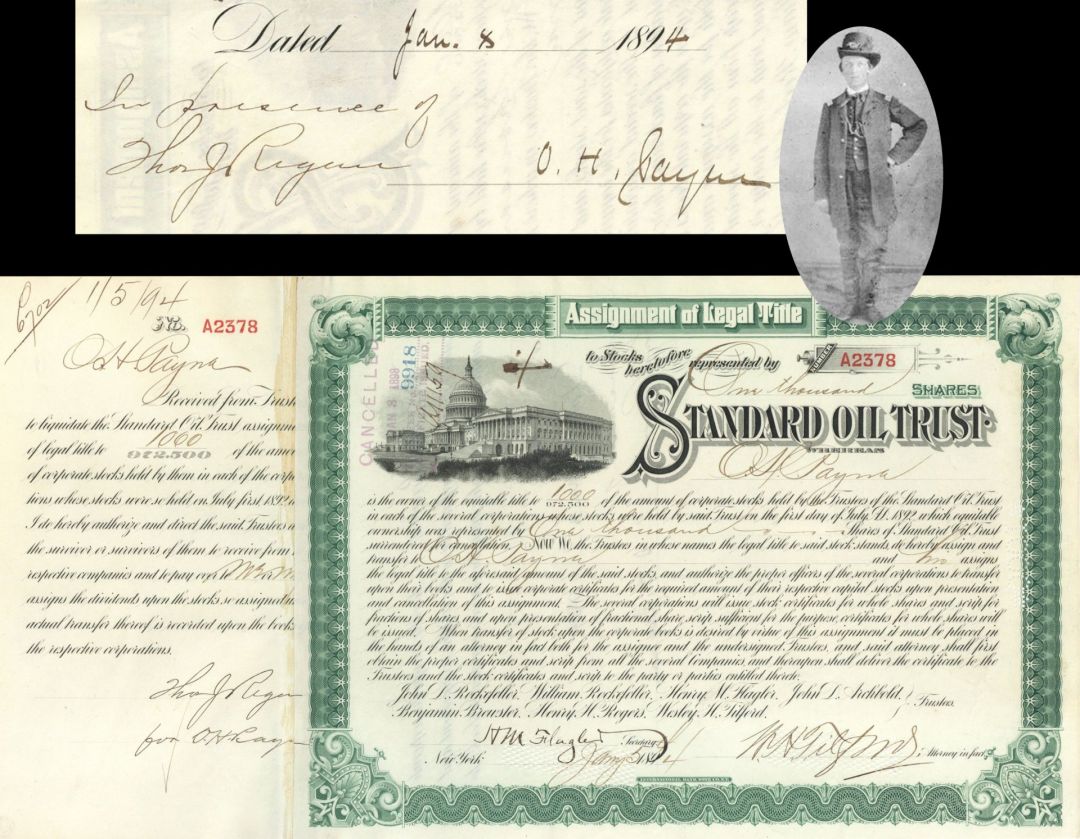 Dated Jan. 8 1894
In presence of
Thos J Regan
O. H. Payne
1/5/94
No. A2378
O H Payne
Received from Trust
to liquidate the Standard Oil Trust assignm
of legal title to 1000
972.500 of the amo
of corporate stocks held by them in each of the corp
tions whose stocks were so held on July first 1892
I do hereby authorize and direct the said Trustees
the survivor or survivors of them to receive from
respective companies and to pay over to
assigns the dividends upon the stocks so assigned
actual transfer thereof is recorded upon the book
the respective corporations.
Thos J Regan
for O H Payne
Assignment of Legal Title
to Stocks heretofore represented by
NUMBER A2378
One thousand SHARES
STANDARD OIL TRUST.
WHEREAS
O H Payne
CANCELLED
9918
is the owner of the equitable title to 1000
972.500 of the amount of corporate stocks held by the Trustees of the Standard Oil Trust
in each of the several corporations whose stocks were held by said Trust on the first day of July A.D. 1892, which equitable
ownership was represented by One thousand Shares of Standard Oil Trust
surrendered for cancellation. Now We, the Trustees in whose names the legal title to said stock stands, do hereby assign and
transfer to O H Payne and his assigns
the legal title to the aforesaid amount of the said stocks, and authorize the proper officers of the several corporations to transfer
upon their books and to issue corporate certificates for the required amount of their respective capital stocks upon presentation
and cancellation of this assignment. The several corporations will issue stock certificates for whole shares and scrip for
fractions of shares and upon presentation of fractional share scrip sufficient for the purpose, certificates for whole shares will
be issued. When transfer of stock upon the corporate books is desired by virtue of this assignment it must be placed in
the hands of an attorney in fact both for the assignee and the undersigned Trustees, and said attorney shall first
obtain the proper certificates and scrip from all the several Companies and thereupon shall deliver the certificate to the
Trustees and the stock certificates and scrip to the party or parties entitled thereto.
John D. Rockefeller, William Rockefeller, Henry M. Flagler, John D. Archbold,
Benjamin Brewster, Henry H. Rogers, Wesley H. Tilford. Trustees.
H M Flagler Secretary
W H Tilford, Attorney in fact.
New York Jany 5 1894